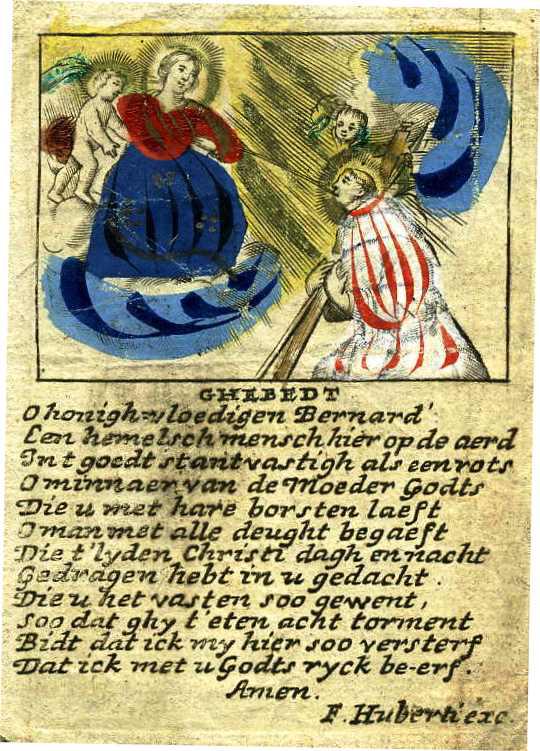 GHEBEDT
O honigh-vloedigen Bernard'
Een hemelsch mensch hier op de aerd
In t goedt stantvastigh als een rots
O minnaer van de Moeder Godts
Die u met hare borsten laeft
O man met alle deught begaeft
Die t'lyden Christi dagh en nacht
Gedragen hebt in u gedacht.
Die u het vasten soo gewent,
Soo dat ghy t'eten acht torment
Bidt dat ick my hier soo versterf
Dat ick met u Godts ryck be-erf.
Amen.
F. Huberti exc.